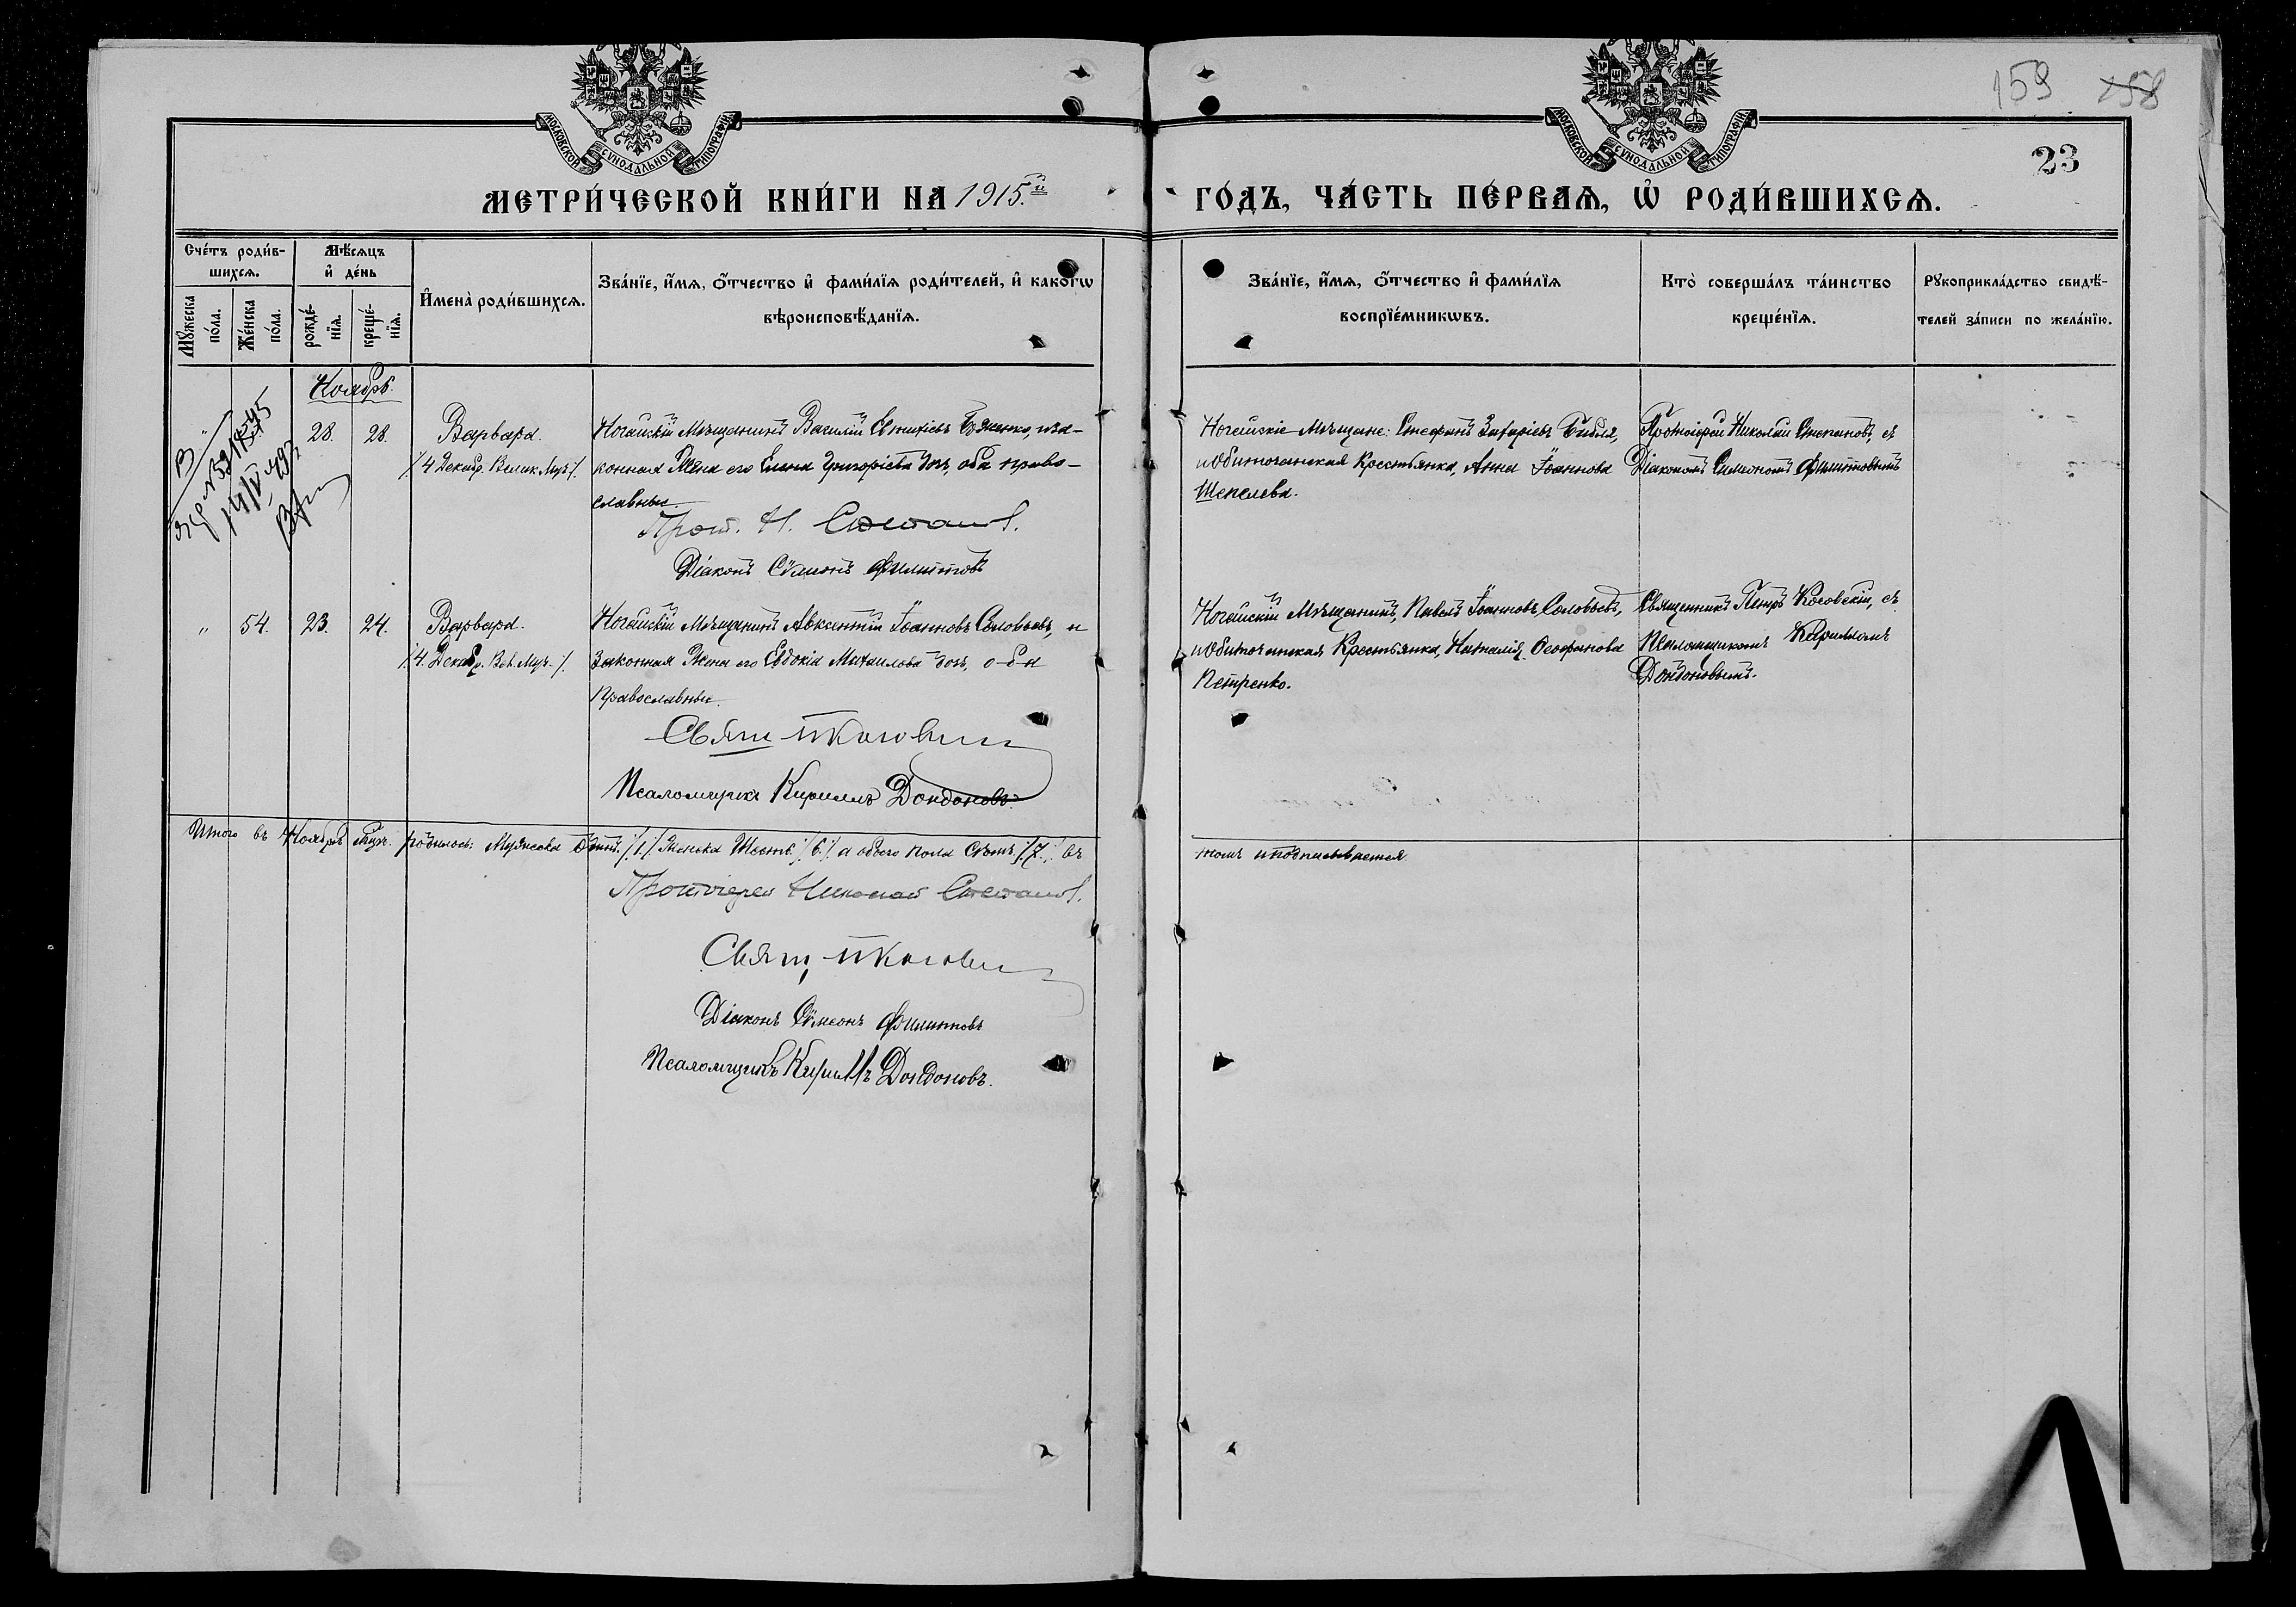 159 158
МОСКОВСКОЙ СѴНОДАЛЬНОЙ ТИПОГРАФІИ
МОСКОВСКОЙ СѴНОДАЛЬНОЙ ТИПОГРАФІИ
23
МЕТРИ́ЧЕСКОЙ КНИ́ГИ НА 1915.й
ГО́ДЪ, ЧА́СТЬ ПЕ́РВАѦ, Ѡ҆ РОДИ́ВШИХСѦ.
Сче́тъ роди́в-
шихсѧ.
Мꙋжеска по́ла.
Же́нска по́ла.
Мѣ́сѧцъ
и҆ де́нь
рожде́-
нїѧ.
креще́-
нїѧ.
И҆мена̀ роди́вшихсѧ.
Зва́нїе, и҆́мѧ, ѻ҆́тчество и҆ фами́лїѧ роди́телей, и҆ како́гѡ
вѣроисповѣ́данїѧ.
Зва́нїе, и҆́мѧ, ѻ҆́тчество и҆ фами́лїѧ
воспрїе́мникѡвъ.
Кто̀ соверша́лъ та́инство
креще́нїѧ.
Рꙋкоприкла́дство свидѣ́-
телей за́писи по жела́нїю.
Ноябрь.
„ 28. 28. Варвара.
/4 Декабр. Велик. Муч./.
Ногайскій Мѣщанинъ Василій
конная Жена его Елена Григоріева дочь, оба право-
славные.
Прот. Н. Степановъ.
Діаконъ Сѵмеонъ Филиповъ
Ногайскіе Мѣщане: Стефанъ Захаріевъ Библя,
и Обиточенская Крестьянка, Анна Іоаннова
Шепелева.
Протоіерей Николай Степановъ, съ
Діакономъ Симеономъ Филиповымъ
„ 54. 23. 24. Варвара.
/4. Декабр. Вел. Муч./.
Ногайскій Мѣщанинъ Авксентій Іоанновъ Соловьевъ, и
законная Жена его Евдокія Михаилова дочь, оба
Православные.
Свящ. П Косовскій
Псаломщикъ Кириллъ Дондоновъ.
Ногайскій Мѣщанинъ, Павелъ Іоанновъ Соловьевъ,
и Обиточенская Крестьянка, Наталія Ѳеофанова
Петренко.
Священникъ Петръ Косовскій, съ
Псаломщикомъ Кирилломъ
Дондоновымъ.
Итого въ Ноябрѣ мцѣ. родилось: Мужеска Одинъ /1./ Женска Шесть /6./ а обоего пола Семь /7./ въ
томъ и подписываемся
Протоіерей Николай Степановъ.
Свящ. П Косовскій
Діаконъ Сѵмеонъ Филиповъ
Псаломщикъ Кириллъ Дондоновъ.